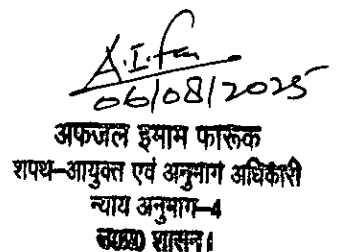 A.I.Fa
06/08/2025
अफजल इमाम फारूक
शपथ-आयुक्त एवं अनुभाग अधिकारी
न्याय अनुभाग-4
उ0प्र0 शासन।